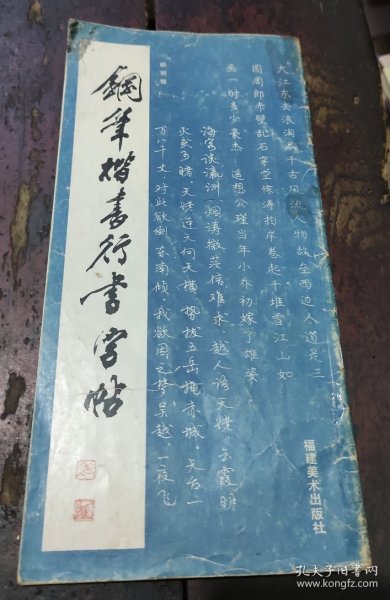 鋼筆楷書行書字帖
大江东去浪淘尽千古风流人物故垒西边人道是三
国周郎赤壁乱石穿空惊涛拍岸卷起千堆雪江山如
画一时多少豪杰 遥想公瑾当年小乔初嫁了雄姿
海客谈瀛洲 烟涛微茫信难求 越人语天姥 云霞明
灭或可睹 天姥连天向天横 势拔五岳掩赤城 天台一
万八千丈 对此欲倒东南倾 我欲因之梦吴越 一夜飞
福建美术出版社
孔夫子旧书网
www.kongfz.com